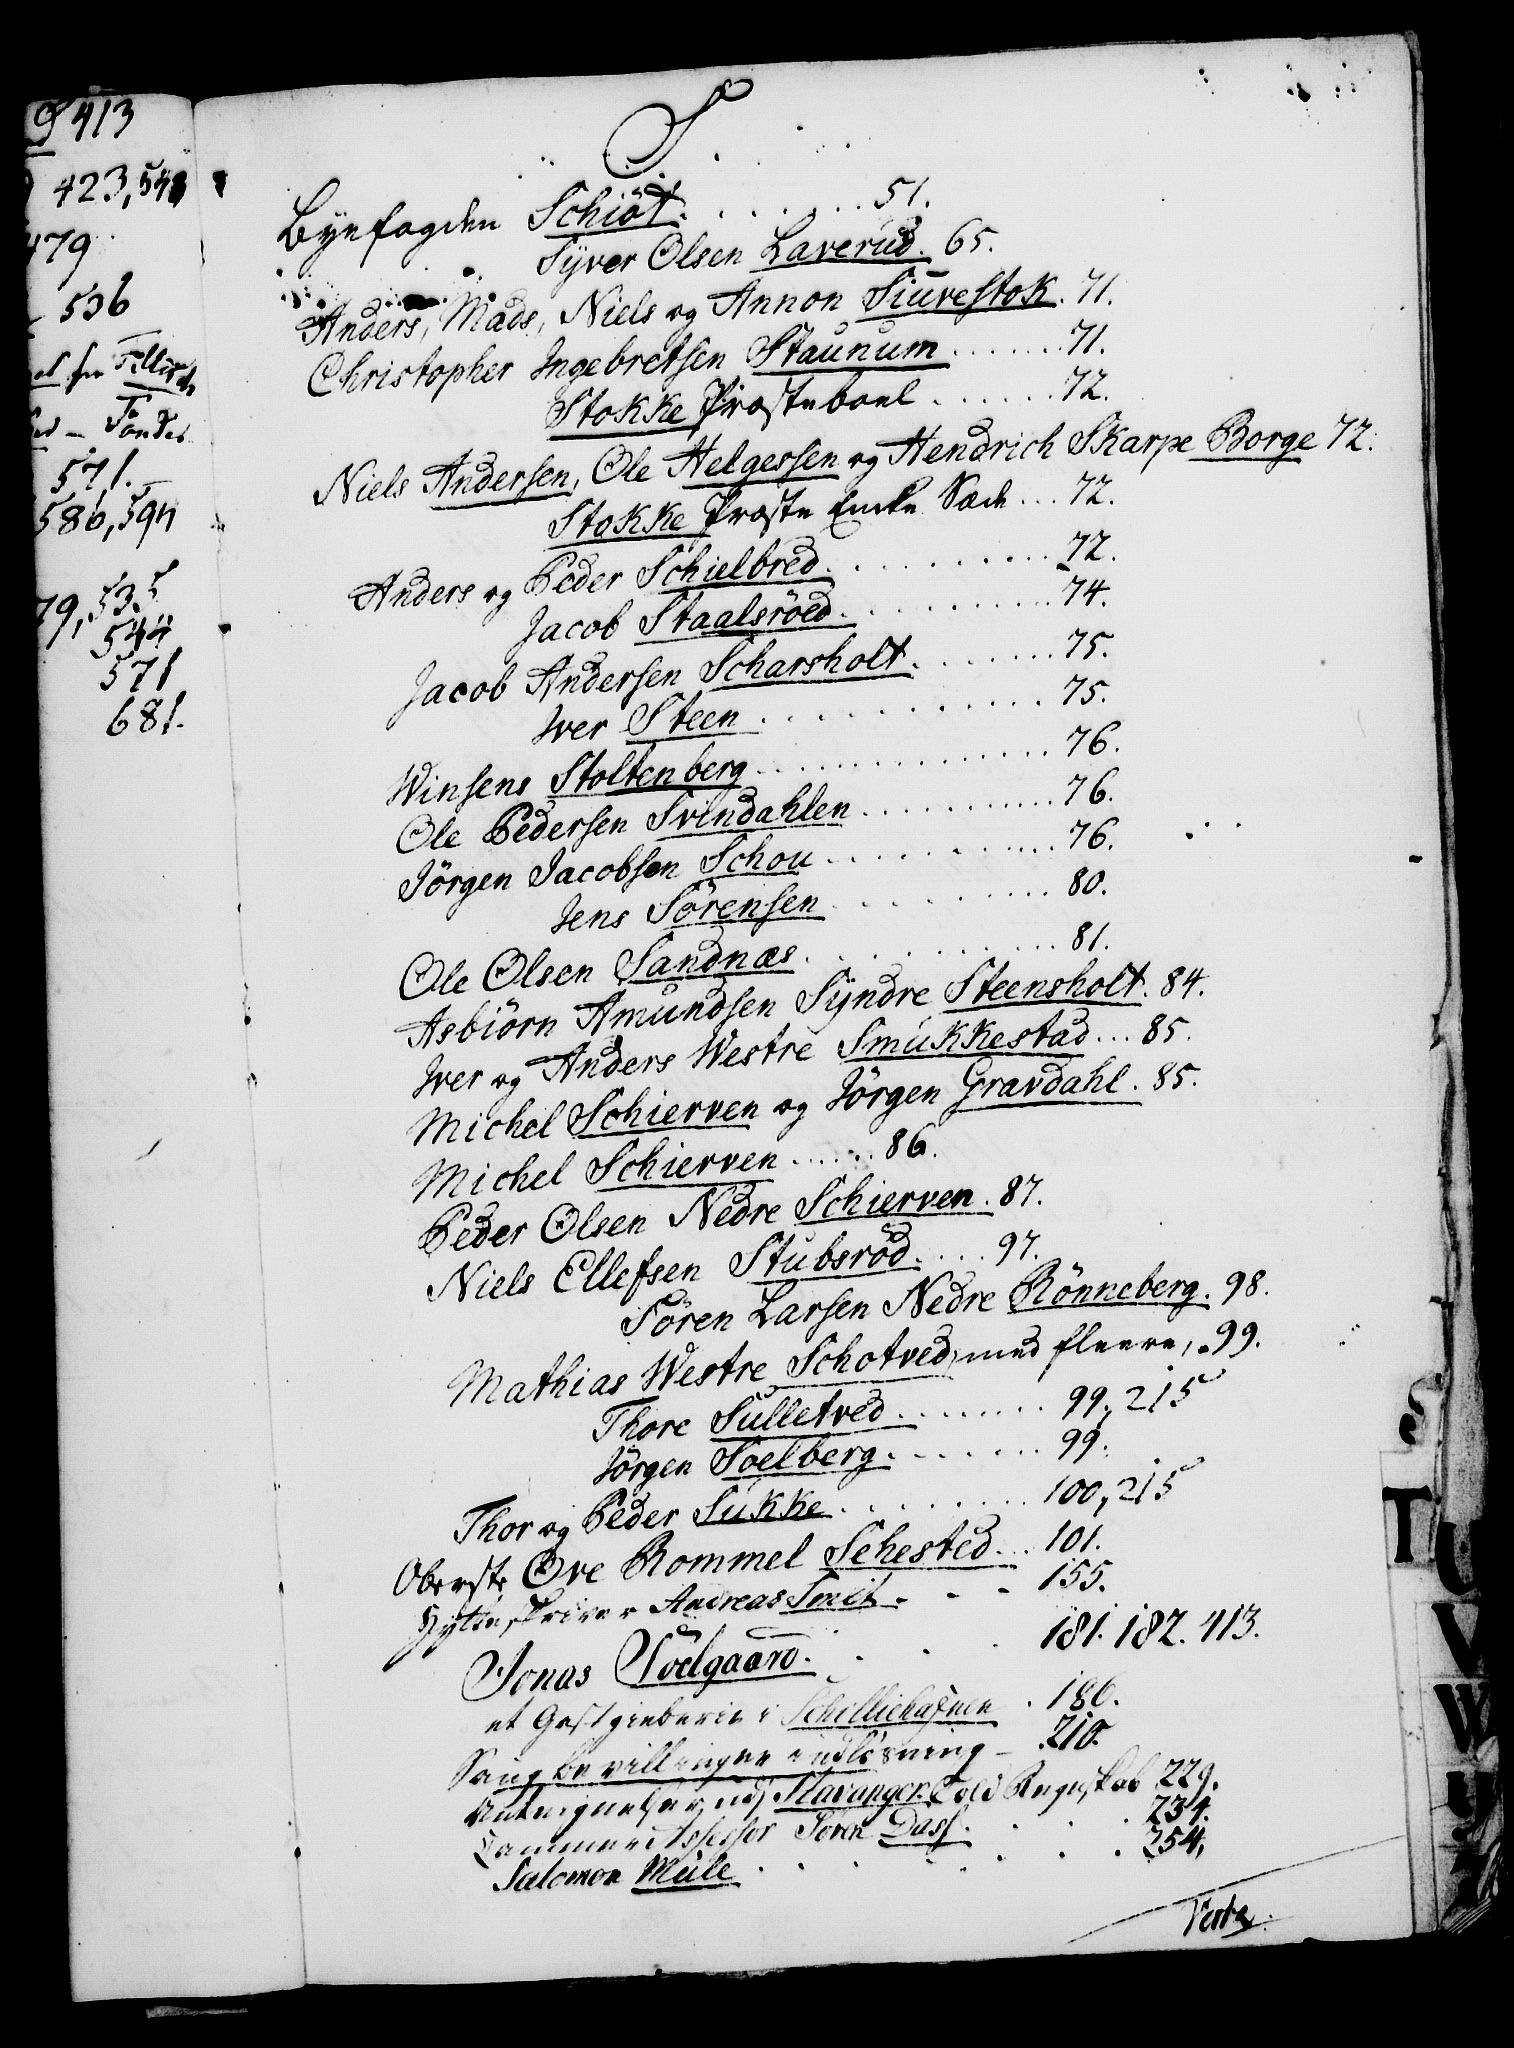 9 413
423, 548
479
536
571.
586, 594
79, 535
544
571
681.
S
Byefogden Schiöt. . . . . . . . 51.
Syver Olsen Laverud. 65.
Anders, Mads, Niels og Annon Siurestok. 71.
Christopher Ingebretsen Staunum . . . . . . . 71.
Stokke Præsteboel . . . . . . . 72.
Niels Andersen, Ole Helgessen og Hendrich Skarpe Borge 72.
Stokke Præste Encke Sæde . . . 72.
Anders og Peder Schielbred . . . . . . . . . . 72.
Jacob Staalsröed . . . . . . . . . . 74.
Jacob Andersen Scharsholt . . . . . . . . 75.
Iver Steen . . . . . . . . . . . . 75.
Winsens Stoltenberg . . . . . . . . . . . . . . 76.
Ole Pedersen Svindahlen . . . . . . . . . . . 76.
Jörgen Jacobsen Schou . . . . . . . . . . . . 76.
Jens Sörensen . . . . . . . . . . . 80.
Ole Olsen Sandnæs . . . . . . . . . . . . 81.
Asbiörn Amundsen Syndre Steensholt. 84.
Iver og Anders Westre Smukkestad . . . 85.
Michel Schierven og Jörgen Gravdahl. 85.
Michel Schierven . . . . . . 86.
Peder Olsen Nedre Schierven. 87.
Niels Ellefsen Stubsröd . . . . . 97.
Sören Larsen Nedre Rönneberg. 98.
Mathias Westre Schotved, med fleere, . 99.
Thore Sulletved . . . . . . . . 99, 215
Jörgen Soelberg . . . . . . . . 99.
Thor og Peder Sukke . . . . . . . . . 100, 215
Oberste Ove Rommel Sehested . . . 101.
Hytteskriver Andreas Smit . - - - 155.
Jonas Södgaard. . . . . 181. 182. 413.
et Gestgieberie i Schilliehafnen . 186.
Saugbevillingers indlösning - . 210.
Antegnelser ved Stavanger Told Regnskab 229.
Cammer Assessor Sören Dass. . . . . 234.
Salomon Mule . . . . . . . . 254,
Verte
S
T
U
V
W
Y